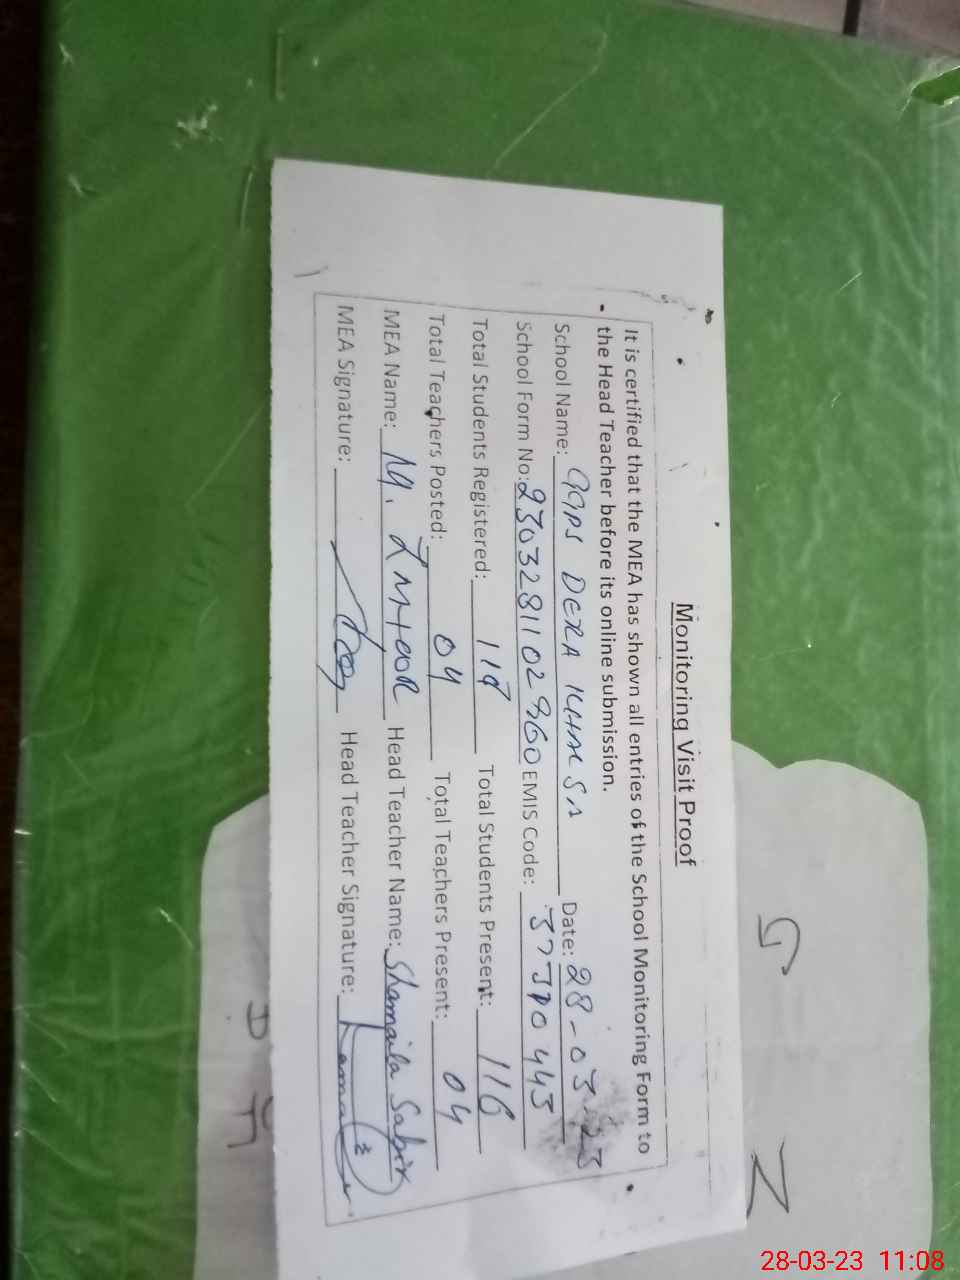 Monitoring Visit Proof
It is certified that the MEA has shown all entries of the School Monitoring Form to
the Head Teacher before its online submission.
School Name: GGPS DERA KHALSA Date: 28-03-23
School Form No: 2303281102960 EMIS Code: 37370443
Total Students Registered: 118 Total Students Present: 116
Total Teachers Posted: 04 Total Teachers Present: 04
MEA Name: M. Head Teacher Name: Shamaila Sabir
MEA Signature: Head Teacher Signature:
28-03-23 11:08